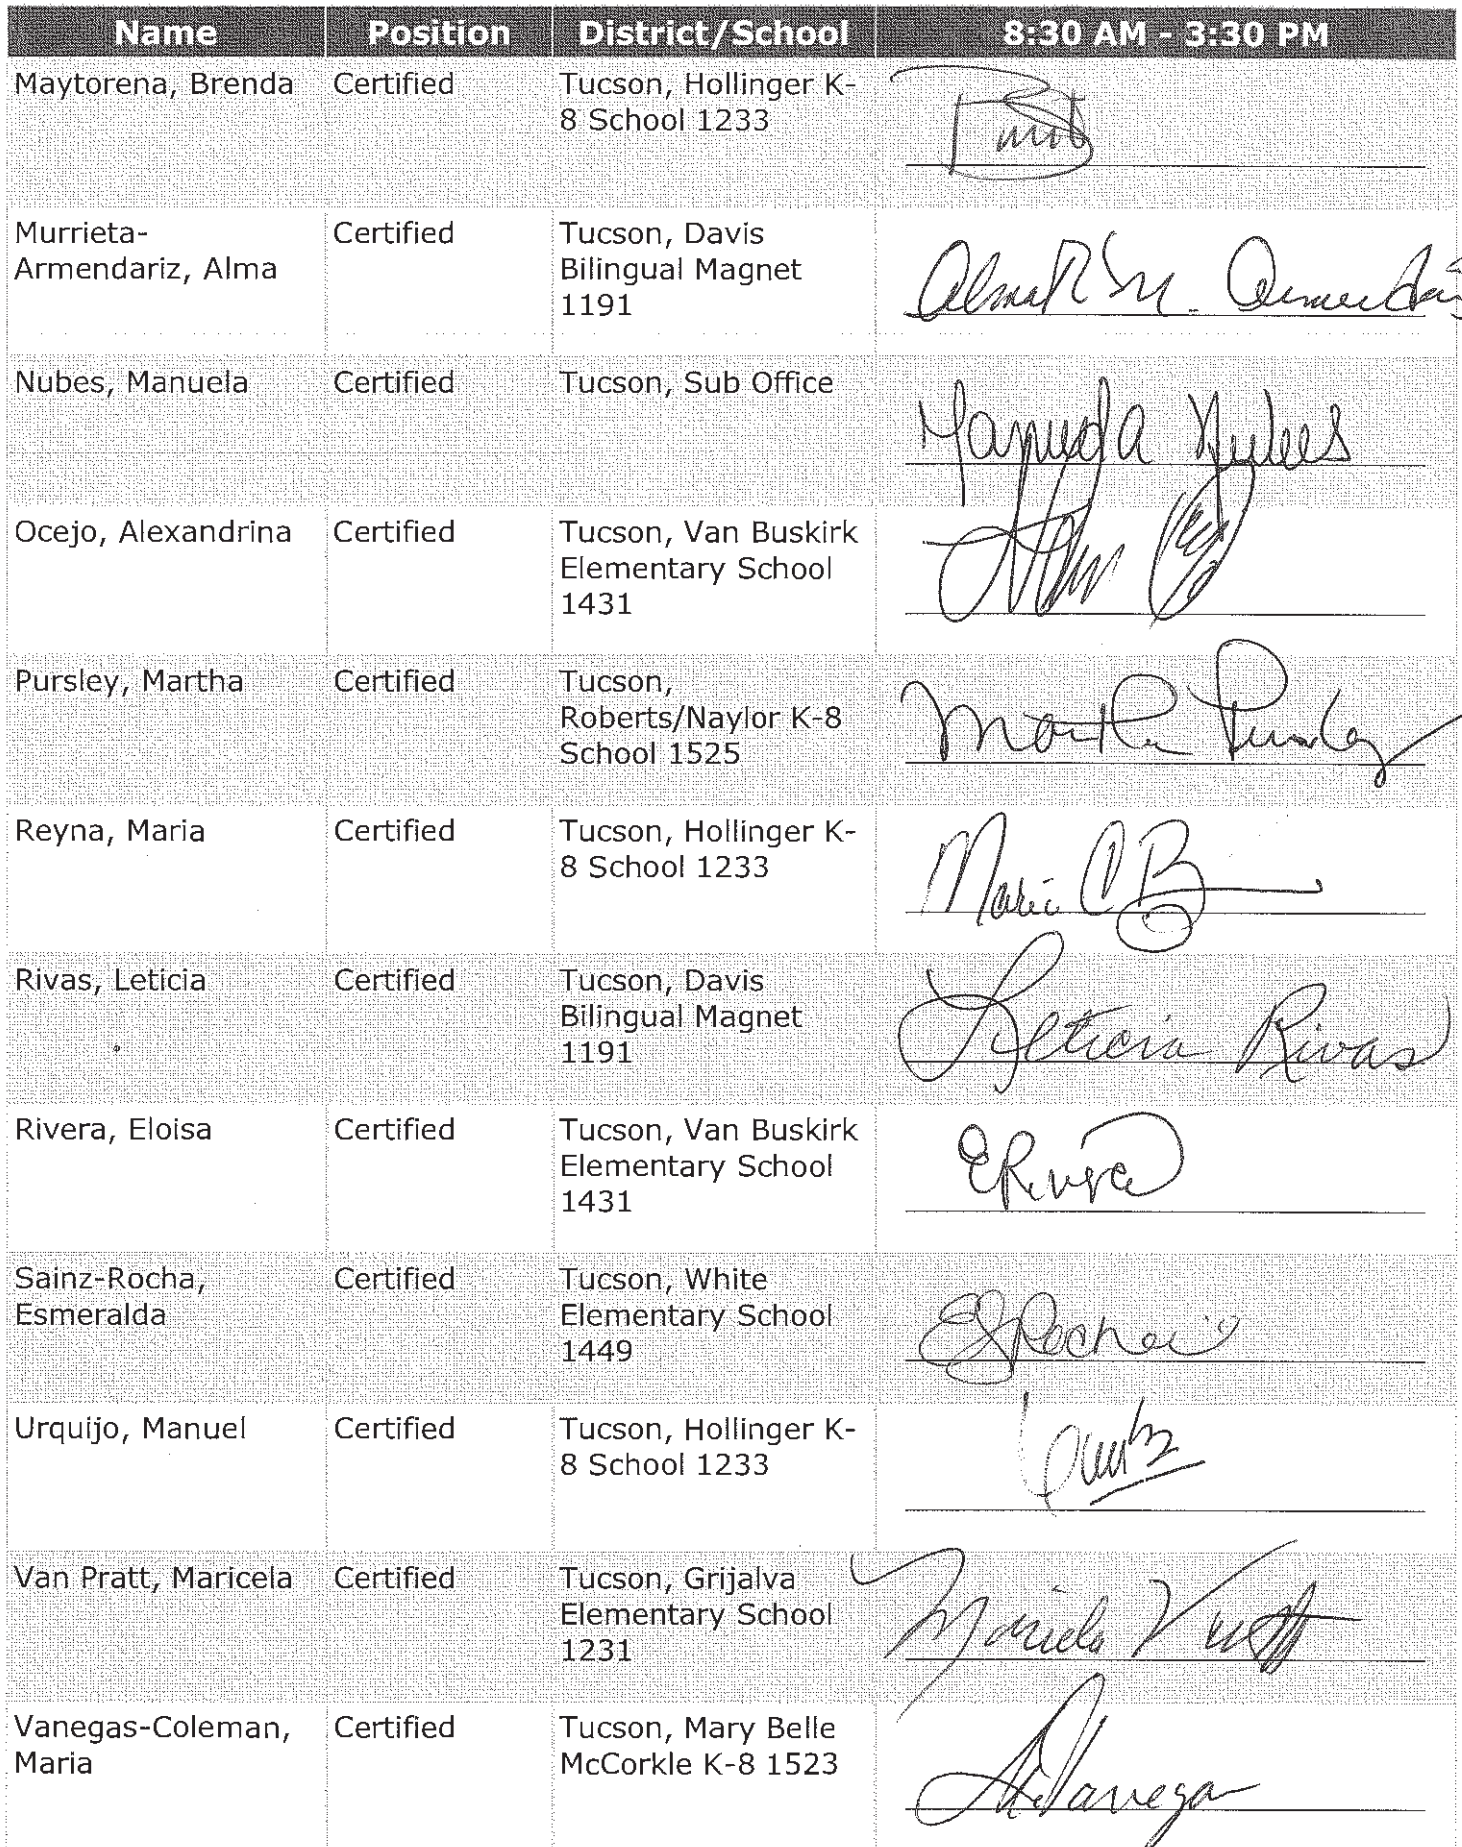 Name Position District/School 8:30 AM - 3:30 PM
Maytorena, Brenda Certified Tucson, Hollinger K-
8 School 1233
Murrieta- Certified Tucson, Davis
Armendariz, Alma Bilingual Magnet
1191
Nubes, Manuela Certified Tucson, Sub Office
Manuela Nubes
Ocejo, Alexandrina Certified Tucson, Van Buskirk
Elementary School
1431
Pursley, Martha Certified Tucson,
Roberts/Naylor K-8 Martha Pursley
School 1525
Reyna, Maria Certified Tucson, Hollinger K-
8 School 1233 Maria C
Rivas, Leticia Certified Tucson, Davis
Bilingual Magnet Leticia Rivas
1191
Rivera, Eloisa Certified Tucson, Van Buskirk
Elementary School ERivera
1431
Sainz-Rocha, Certified Tucson, White
Esmeralda Elementary School
1449 ESRocha
Urquijo, Manuel Certified Tucson, Hollinger K-
8 School 1233
Van Pratt, Maricela Certified Tucson, Grijalva
Elementary School Maricela
1231
Vanegas-Coleman, Certified Tucson, Mary Belle
Maria McCorkle K-8 1523